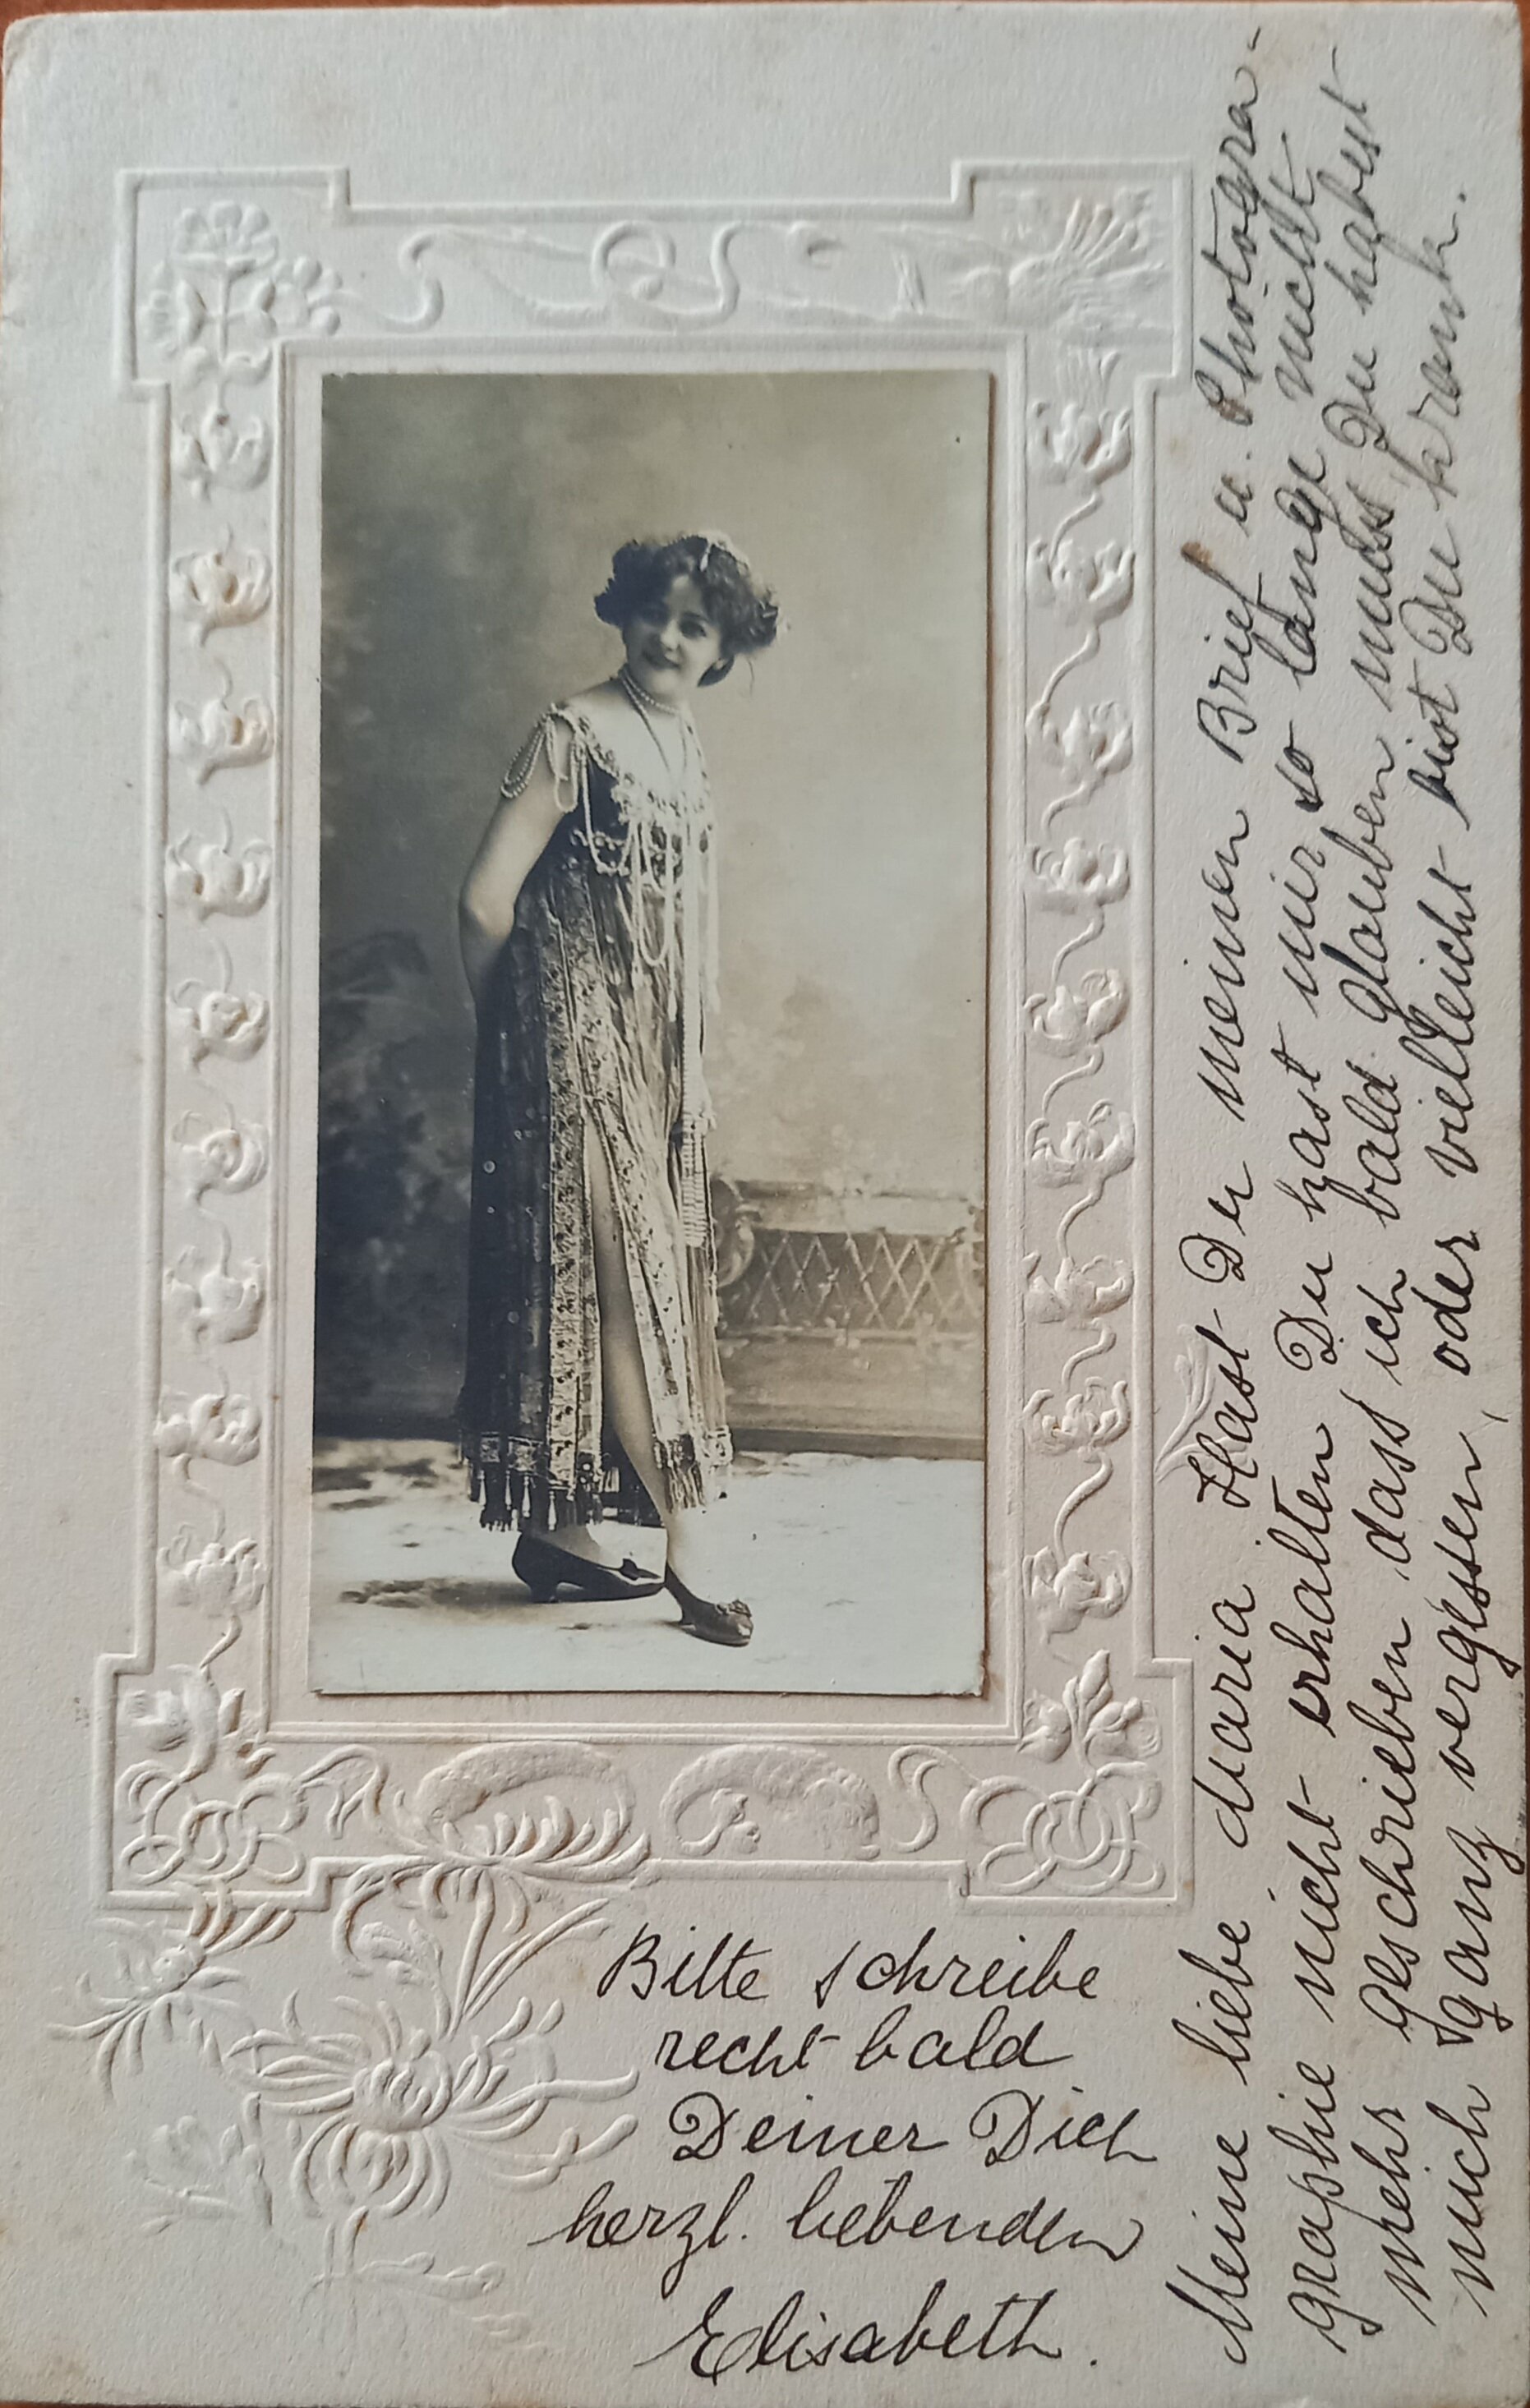 Meine liebe Maria. Hast Du meinen Brief u. Photogra-
graphie nicht erhalten Du hast mir so lange nicht
mehr geschrieben dass ich bald glauben muss Du habest
mich ganz vergessen, oder vielleicht bist Du krank.
Bitte schreibe
recht bald
Deiner Dich
herzl. liebenden
Elisabeth.